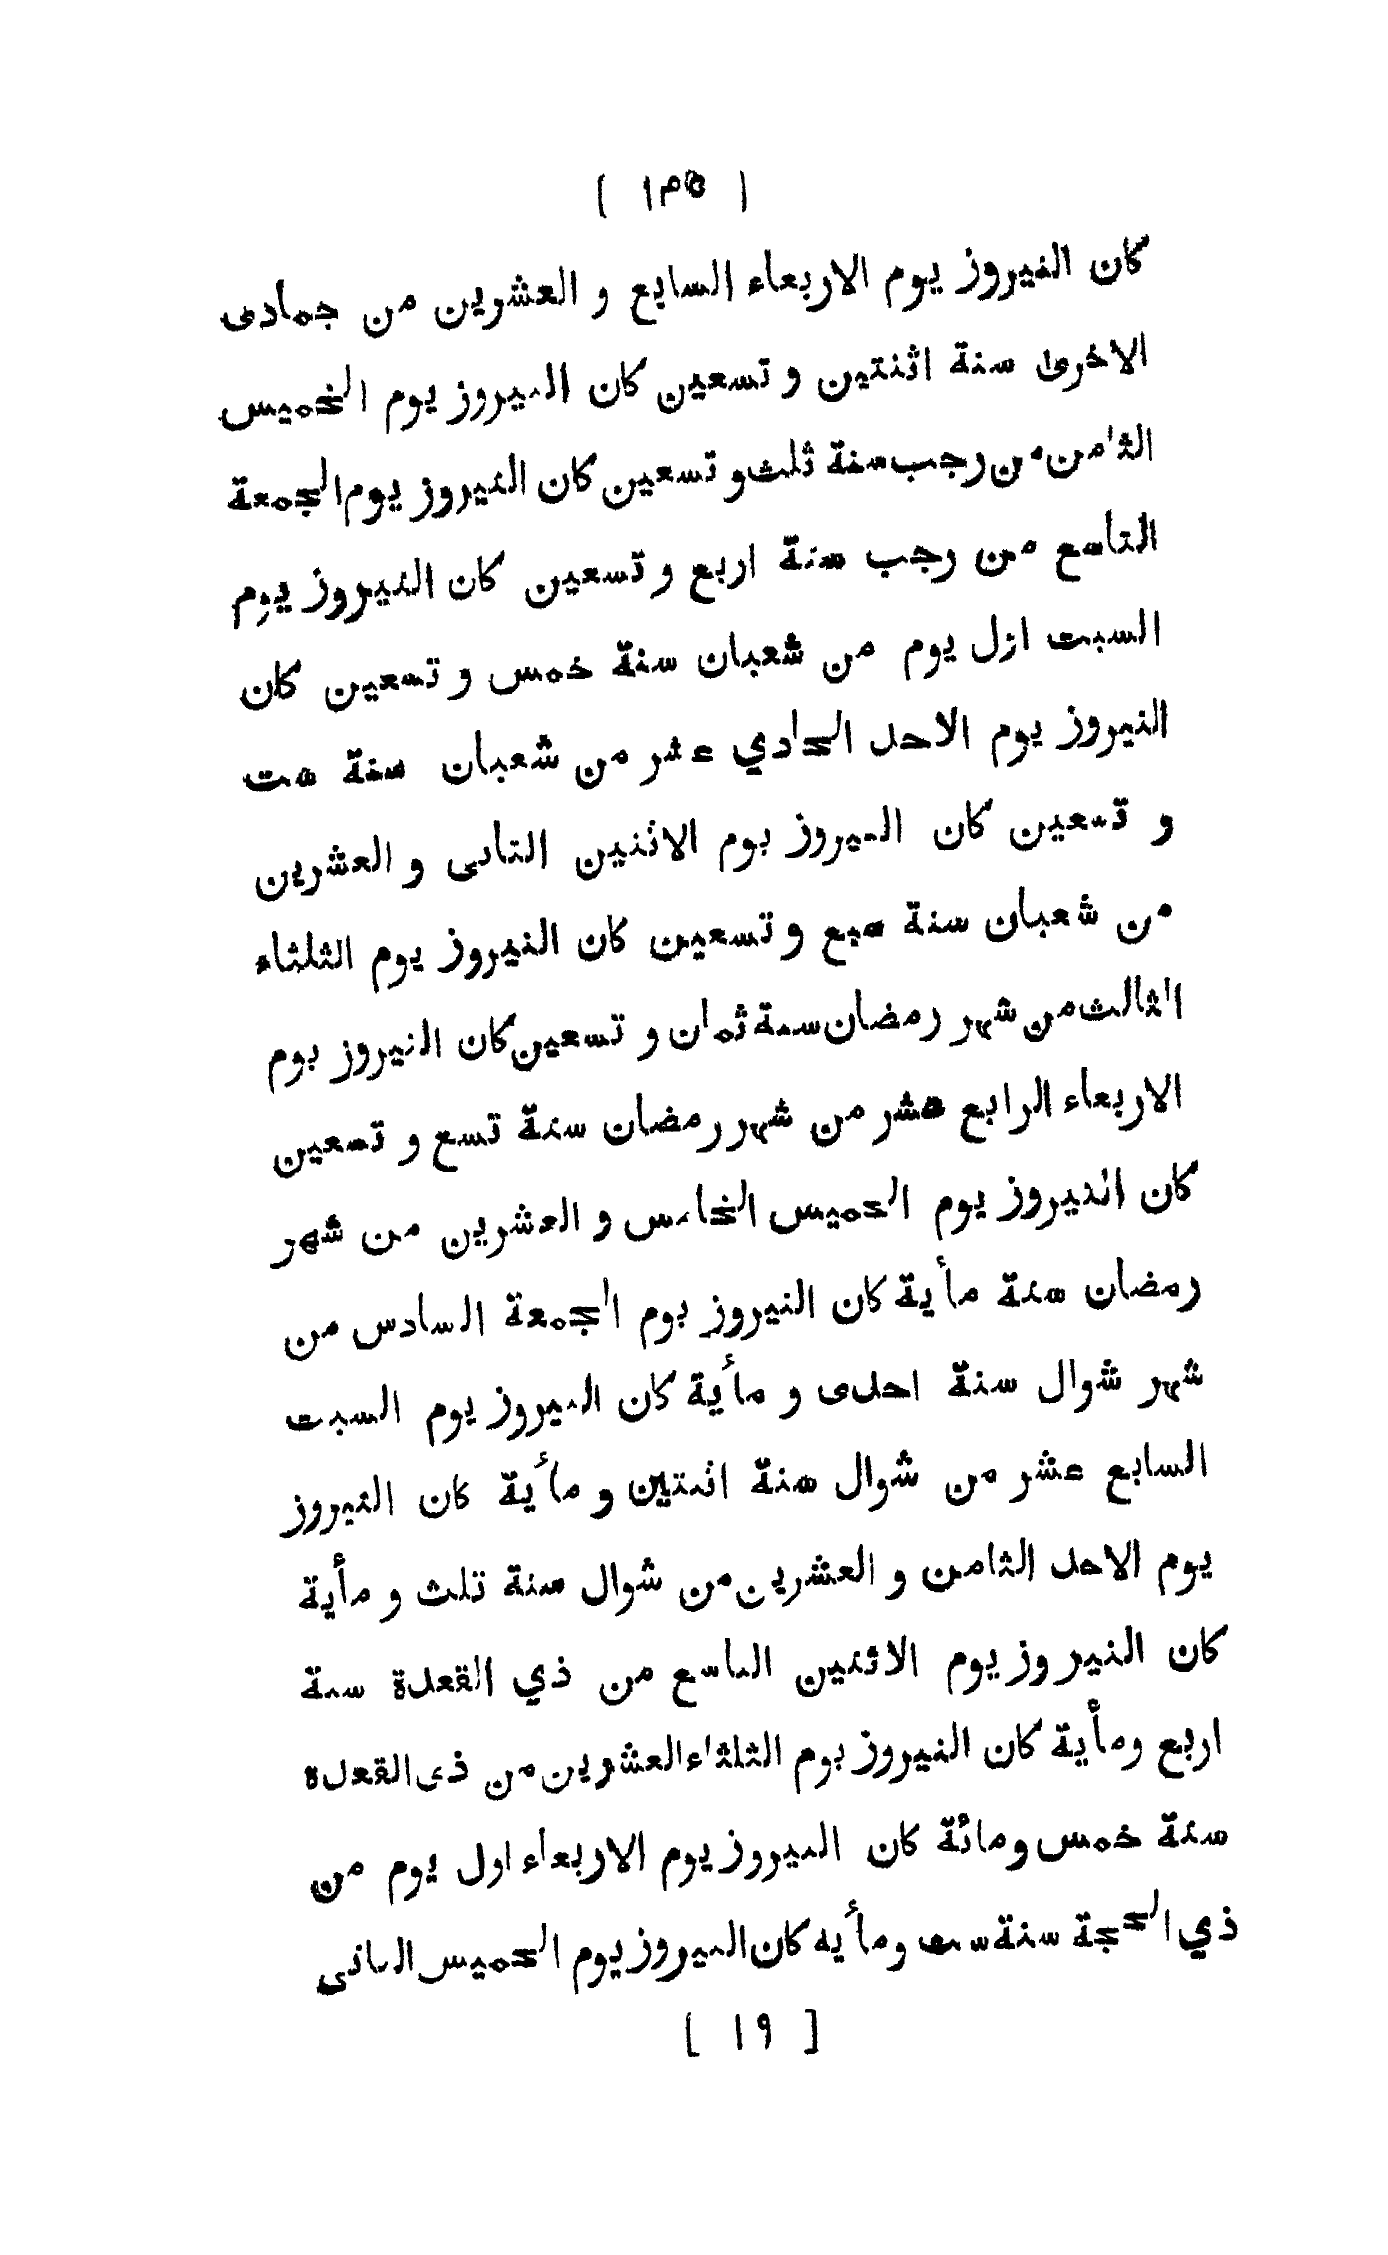 ( ١٣٥ )
كان النيروز يوم الاربعاء السابع و العشرين من جمادى
الاخرى سنة اثنتين و تسعين كان النيروز يوم الخميس
الثامن من رجب سنة ثلث و تسعين كان النيروز يوم الجمعة
التاسع من رجب سنة اربع و تسعين كان النيروز يوم
السبت اول يوم من شعبان سنة خمس و تسعين كان
النيروز يوم الاحد الحادي عشر من شعبان سنة ست
و تسعين كان النيروز يوم الاثنين الثانى و العشرين
من شعبان سنة سبع و تسعين كان النيروز يوم الثلثاء
الثالث من شهر رمضان سنة ثمان و تسعين كان النيروز يوم
الاربعاء الرابع عشر من شهر رمضان سنة تسع و تسعين
كان النيروز يوم الخميس الخامس و العشرين من شهر
رمضان سنة مأية كان النيروز يوم الجمعة السادس من
شهر شوال سنة احدى و مأية كان النيروز يوم السبت
السابع عشر من شوال سنة اثنتين و مأية كان النيروز
يوم الاحد الثامن و العشرين من شوال سنة ثلث و مأية
كان النيروز يوم الاثنين التاسع من ذي القعدة سنة
اربع ومأية كان النيروز يوم الثلثاء العشرين من ذى القعدة
سنة خمس ومائة كان النيروز يوم الاربعاء اول يوم من
ذي الحجة سنة ست ومأية كان النيروز يوم الخميس الثانى
[ ١٩ ]